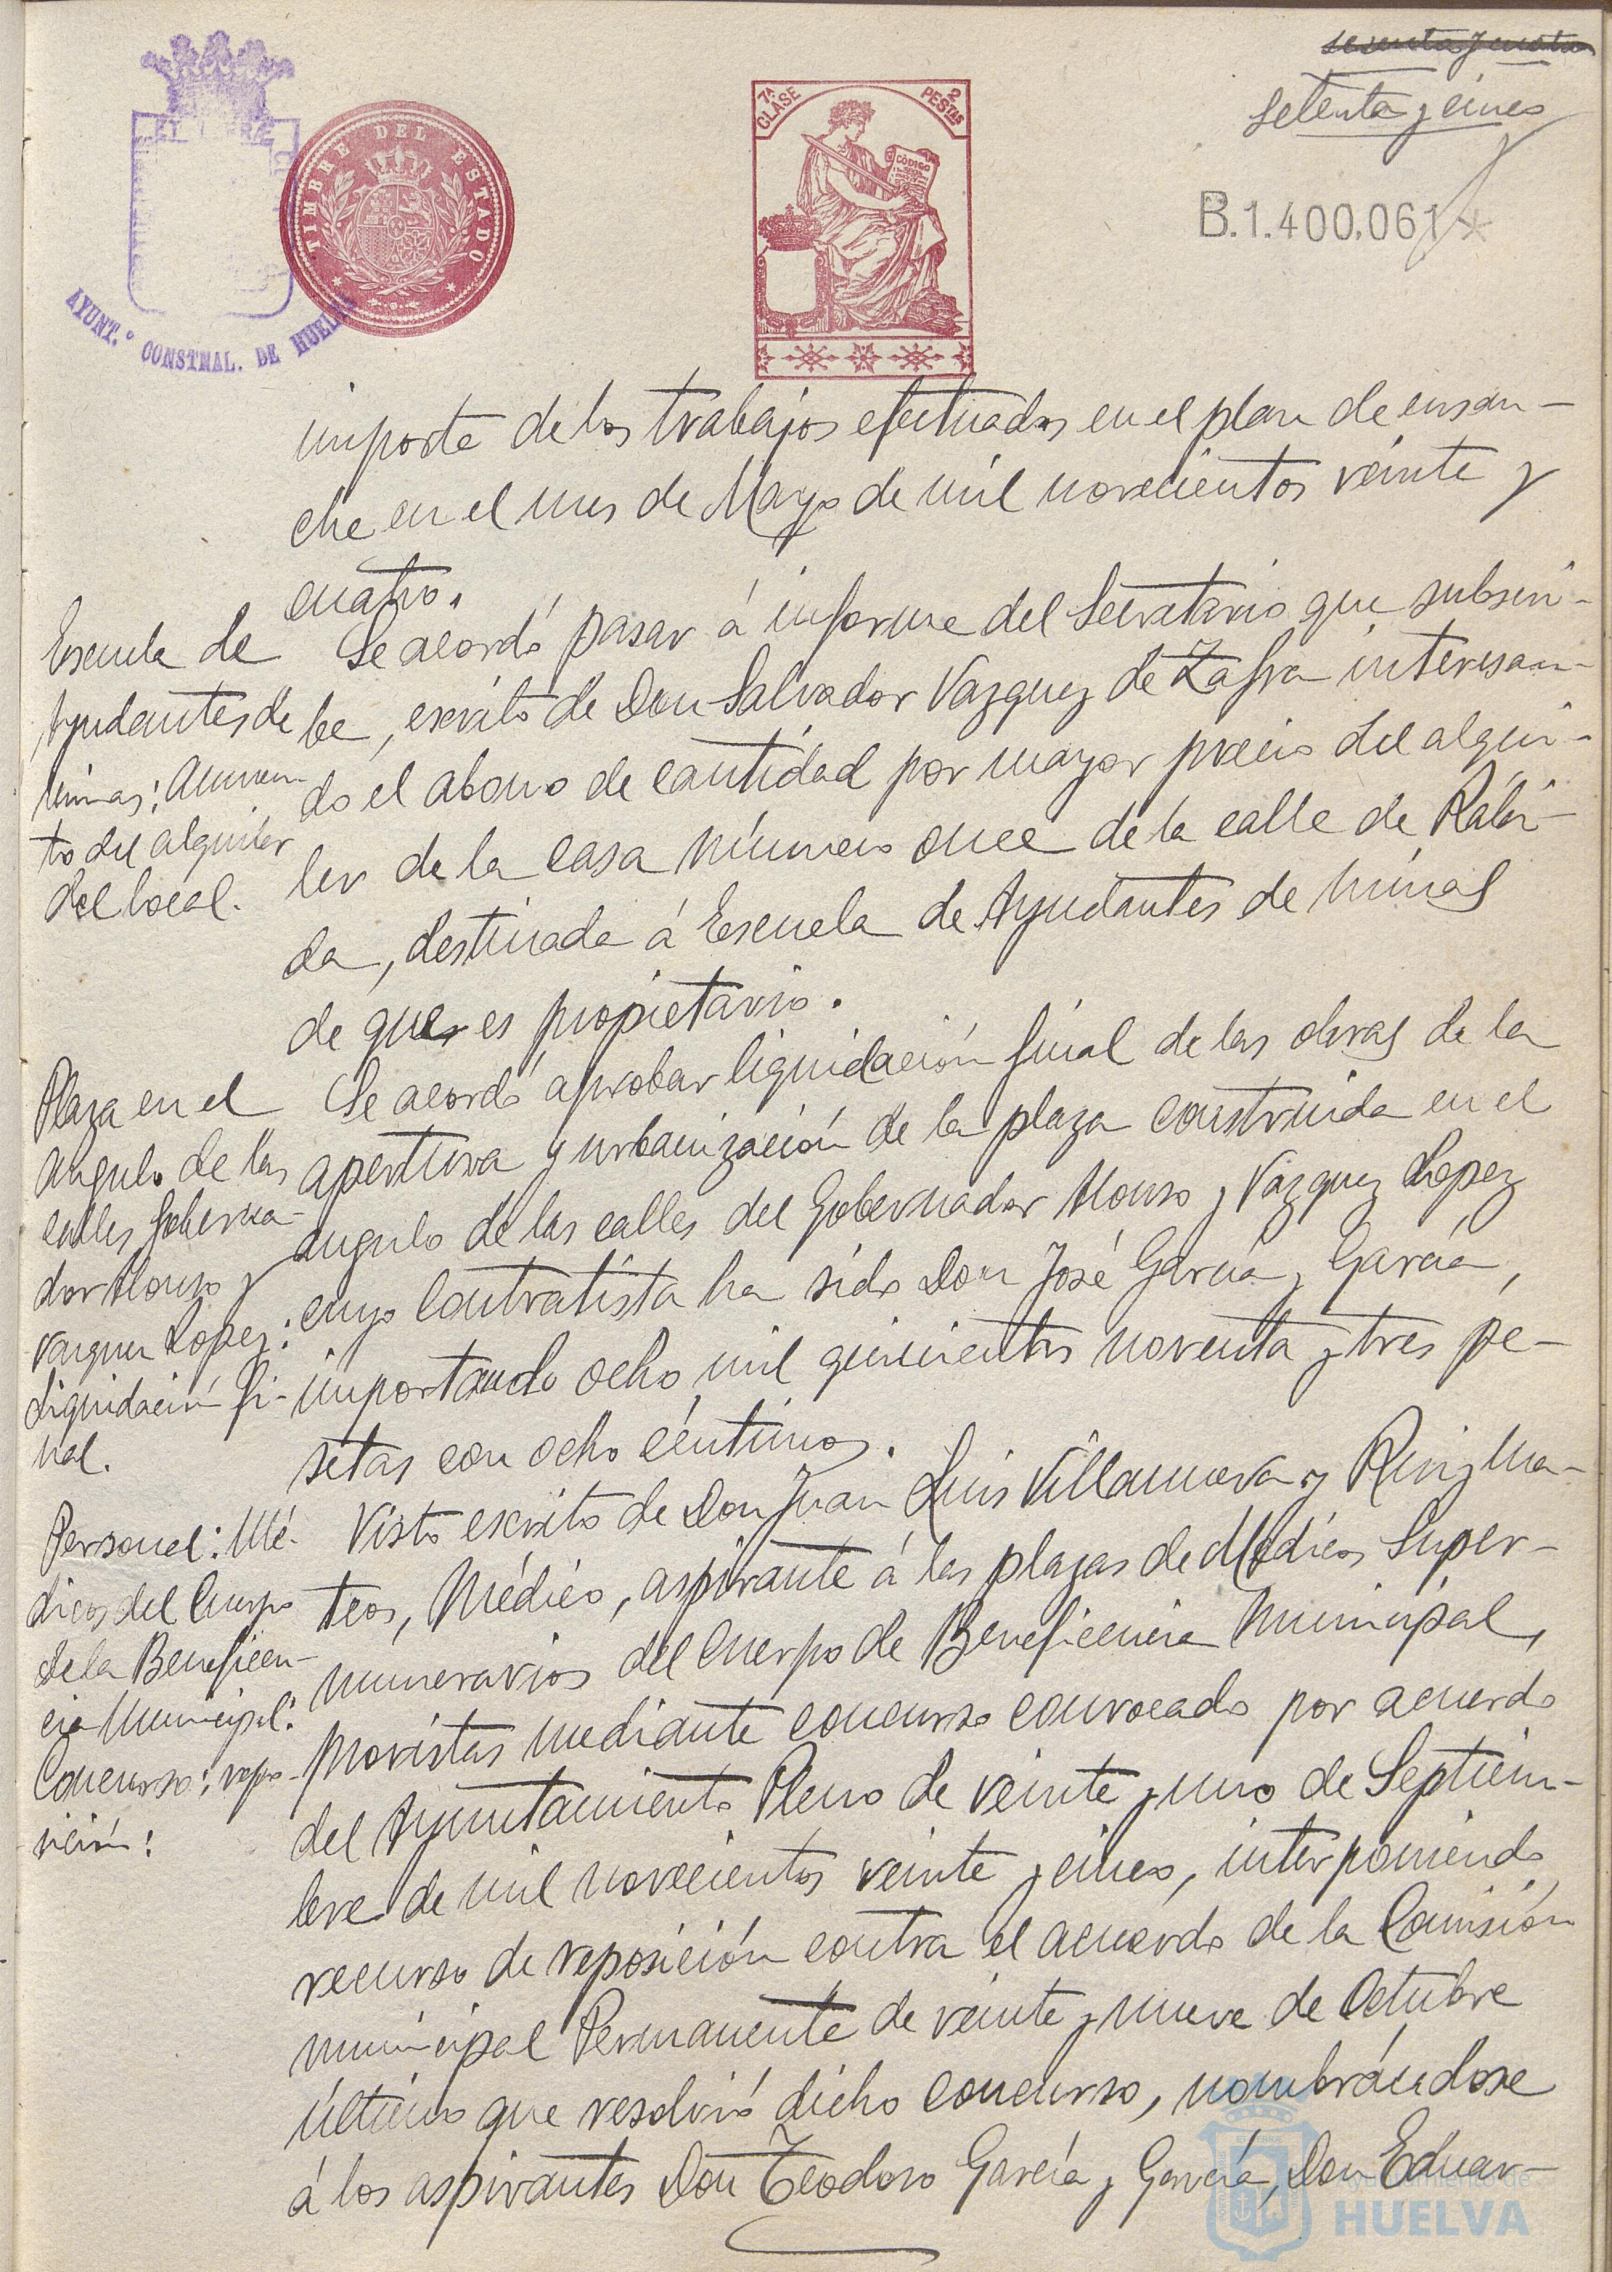 setenta y cinco
7ª CLASE
2 PESTAS
CÓDIGO
TIMBRE DEL ESTADO
B.1.400.061*
AYUNT.º CONSTNAL. DE HUELVA
importe de los trabajos efectuados en el plan de ensan-
che en el mes de Mayo de mil novecientos veinte y
cuatro.
Escuela de
Ayudantes de
minas: Aumen-
to del alquiler
del local.
Se acordó pasar á informe del Secretario que subscri-
be, escrito de Don Salvador Vazquez de Zafra interesan-
do el abono de cantidad por mayor precio del alqui-
ler de la casa número once de la calle de Rábi-
da, destinada á Escuela de Ayudantes de minas
de que es propietario.
Plaza en el
ángulo de las
calles Goberna-
dor Alonso y
Vazquez Lopez:
Liquidación fi-
nal.
Se acordó aprobar liquidación final de las obras de la
apertura y urbanización de la plaza construida en el
angulo de las calles del Gobernador Alonso y Vazquez Lopez
cuyo contratista ha sido Don José García y García,
importando ocho mil quinientas noventa y tres pe-
setas con ocho céntimos.
Personal: Mé-
dicos del Cuerpo
de la Beneficen-
cia Municipal:
Concurso: repo-
sición:
Visto escrito de Don Juan Luis Villanueva y Ruiz Ma-
teos, Médico, aspirante á las plazas de Médicos Super-
numerarios del Cuerpo de Beneficencia Municipal,
provistas mediante concurso convocado por acuerdo
del Ayuntamiento Pleno de veinte y uno de Septiem-
bre de mil novecientos veinte y cinco, interponiendo
recurso de reposición contra el acuerdo de la Comisión
municipal Permanente de veinte y nueve de Octubre
último que resolvió dicho concurso, nombrándose
á los aspirantes Don Teodoro García y García, Don Eduar-
Ayuntamiento de
HUELVA